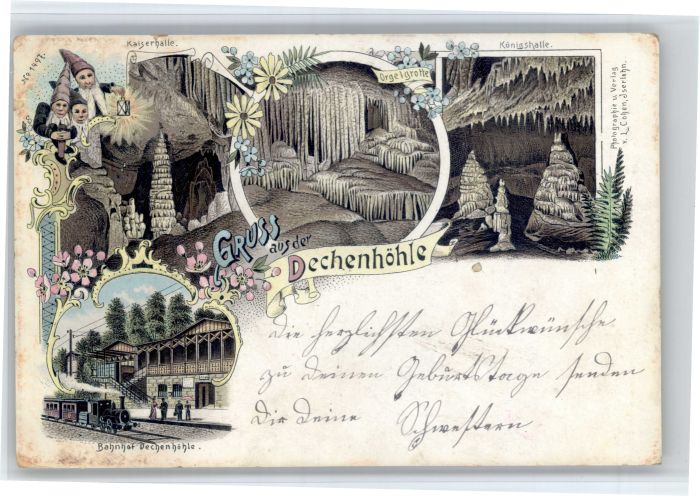 No 1497.
Kaiserhalle.
Orgelgrotte
Königshalle.
Photographie u. Verlag
v. L. Cohen, Iserlohn.
GRUSS aus der
Dechenhöhle
Bahnhof Dechenhöhle.
Die herzlichsten Glückwünsche
zu deinen Geburtstage senden
Dir deine Schwestern